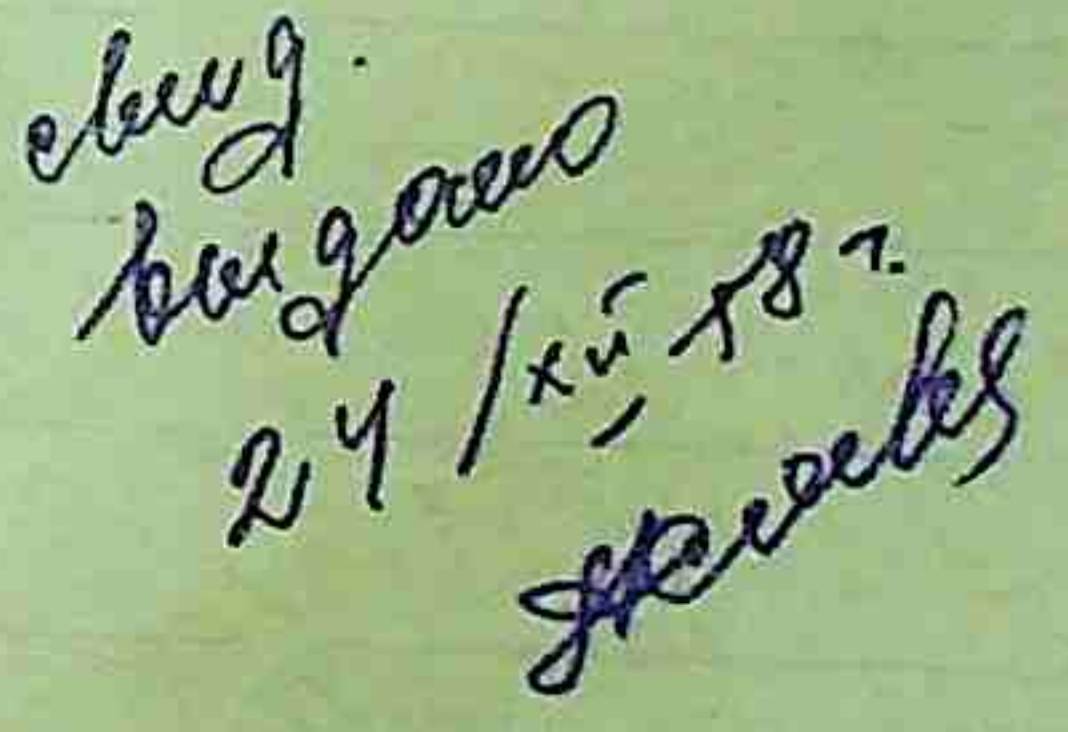 свид.
выдано
24/XII 58 г.